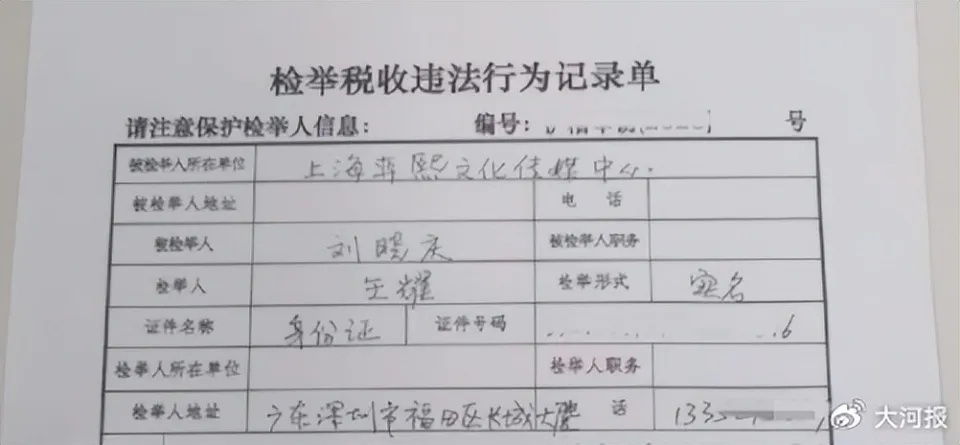 检举税收违法行为记录单
请注意保护检举人信息： 编号： 号
被检举人所在单位 上海 熙文化传媒中心.
被检举人地址 电 话
被检举人 刘晓庆 被检举人职务
检举人 王耀 检举形式 实名
证件名称 身份证 证件号码 6
检举人所在单位 检举人职务
检举人地址 广东深圳市福田区长城大 话 133
大河报